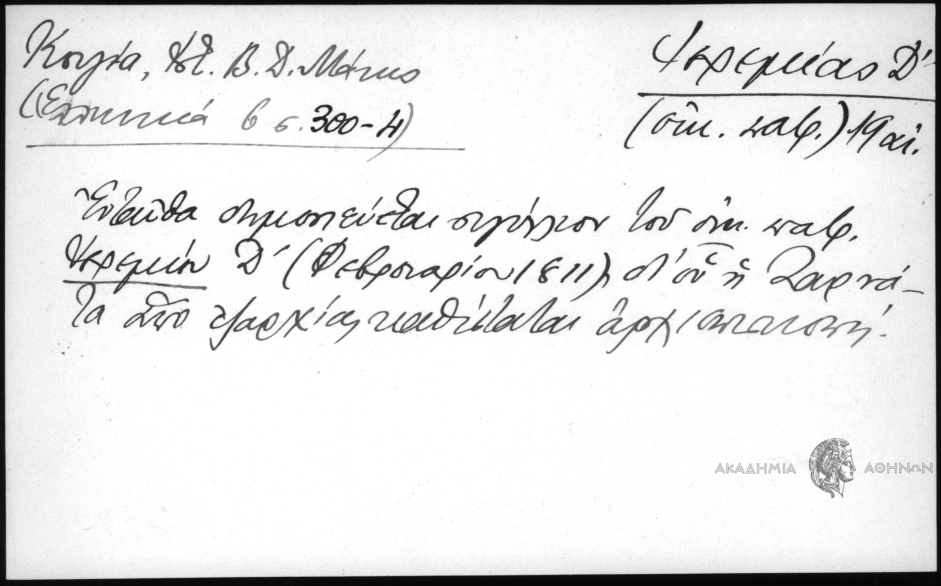 Κουγέα, Σωκ. Β. Δ. Μάτκο
6 σ. 300-4)
Ἱερεμίας Δ΄
(οἰκ. πατρ.) 19 αἰ.
Ἐνταῦθα δημοσιεύεται σιγίλλιον τοῦ οἰκ. πατρ.
Ἱερεμίου Δ΄ (Φεβρουαρίου 1811), δι' οὗ ἡ Ζαρνά-
τα ἀπὸ ἐξαρχίας καθίσταται ἀρχιεπισκοπή.
ΑΚΑΔΗΜΙΑ ΑΘΗΝΩΝ